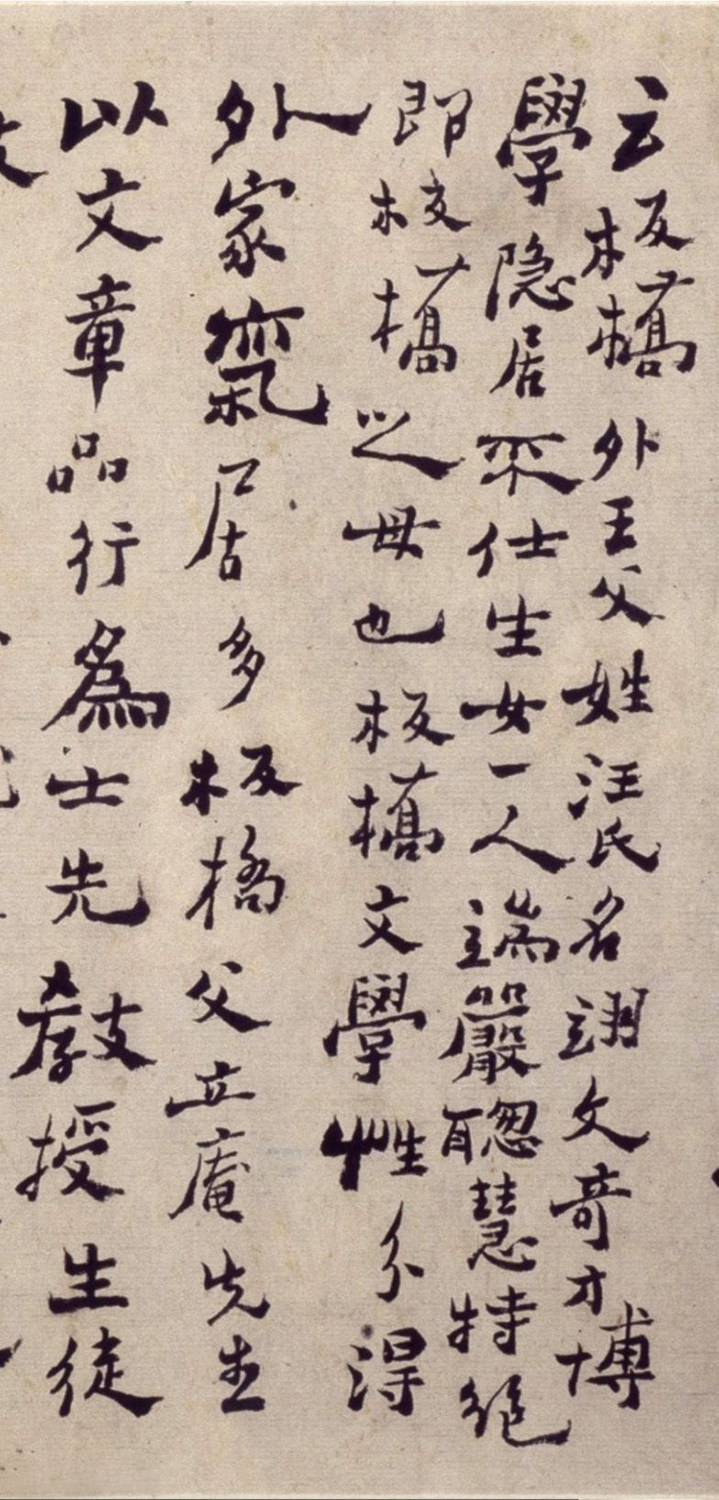 云板橋外王父姓汪氏名翊文奇才博
學隐居不仕生女一人端嚴聰慧特絕
即板橋之母也板橋文學性分得
外家氣居多板橋父立庵先生
以文章品行爲士先教授生徒